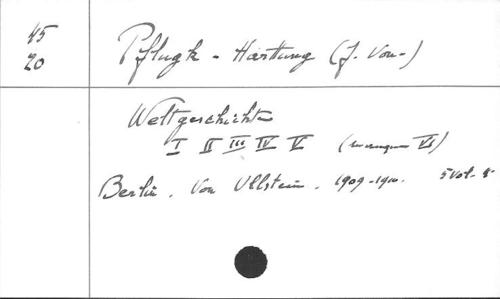 45
20
Pflugk - Harttung (J. Von-)
Weltgeschichte
I II III IV V ( VI)
Berlin. Von Ullstein. 1909-1910. 5 Vol.